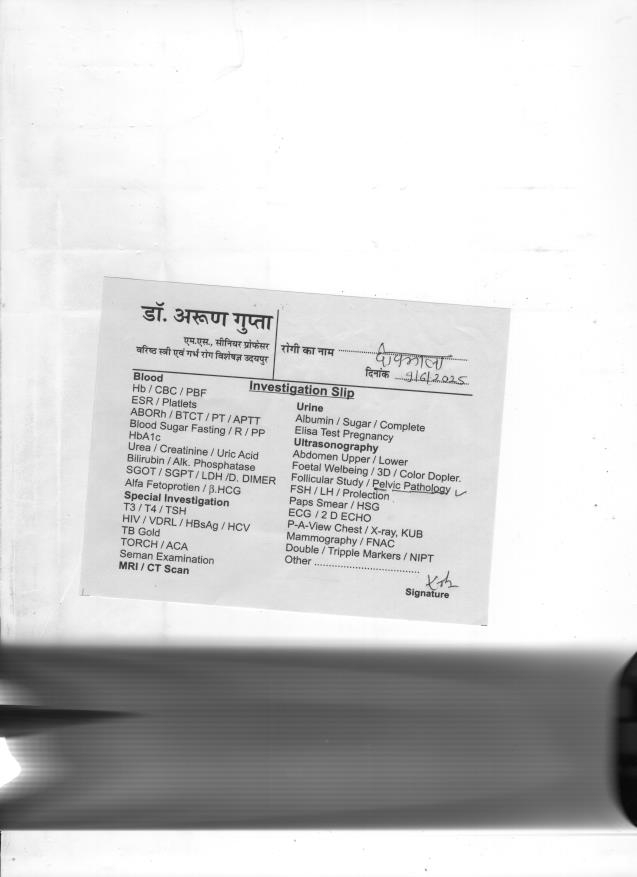 डॉ. अरूण गुप्ता
एम.एस., सीनियर प्रोफेसर
वरिष्ठ स्त्री एवं गर्भ रोग विशेषज्ञ उदयपुर
रोगी का नाम
दिनांक 9/6/2025
Investigation Slip
Blood
Hb / CBC / PBF
ESR / Platlets
ABORh / BTCT / PT / APTT
Blood Sugar Fasting / R / PP
HbA1c
Urea / Creatinine / Uric Acid
Bilirubin / Alk. Phosphatase
SGOT / SGPT / LDH /D. DIMER
Alfa Fetoprotien / β.HCG
Special Investigation
T3 / T4 / TSH
HIV / VDRL / HBsAg / HCV
TB Gold
TORCH / ACA
Seman Examination
MRI / CT Scan
Urine
Albumin / Sugar / Complete
Elisa Test Pregnancy
Ultrasonography
Abdomen Upper / Lower
Foetal Welbeing / 3D / Color Dopler.
Follicular Study / Pelvic Pathology ✓
FSH / LH / Prolection
Paps Smear / HSG
ECG / 2 D ECHO
P-A-View Chest / X-ray, KUB
Mammography / FNAC
Double / Tripple Markers / NIPT
Other ..................................
Signature